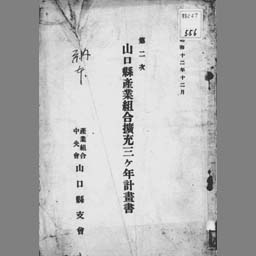 昭和十二年十二月
第二次
山口縣產業組合擴充三ケ年計畫書
產業組合
中央會
山口縣支會
556